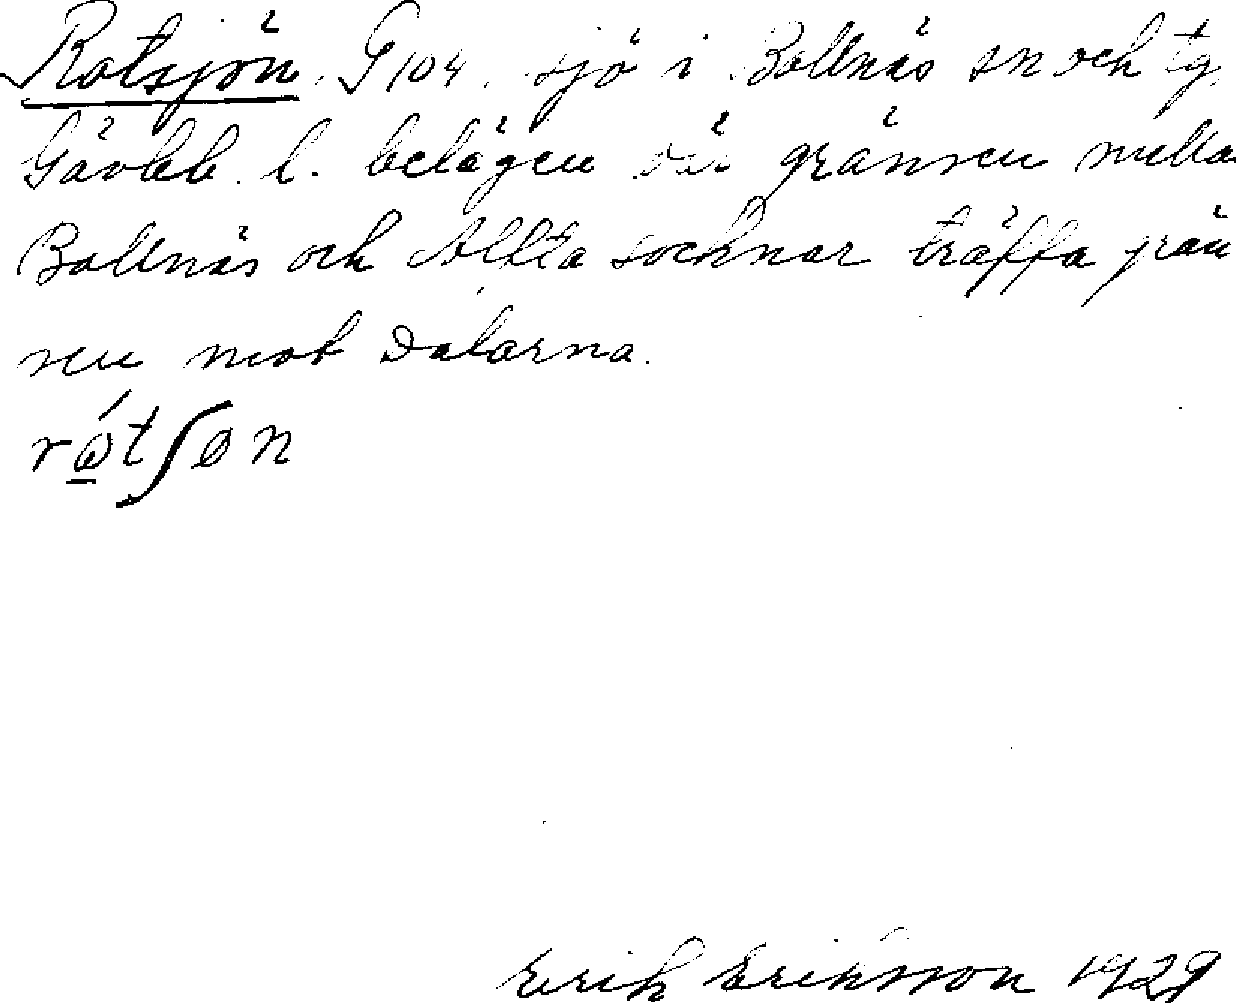 Rotsjön. G 104. sjö i Bollnäs sn och tg.
Gävleb. l. belägen där gränsen mella
Bollnäs och Alfta socknar träffa grän
sen mot Dalarna.
rώ̲tʃøn
Erik Eriksson 1929